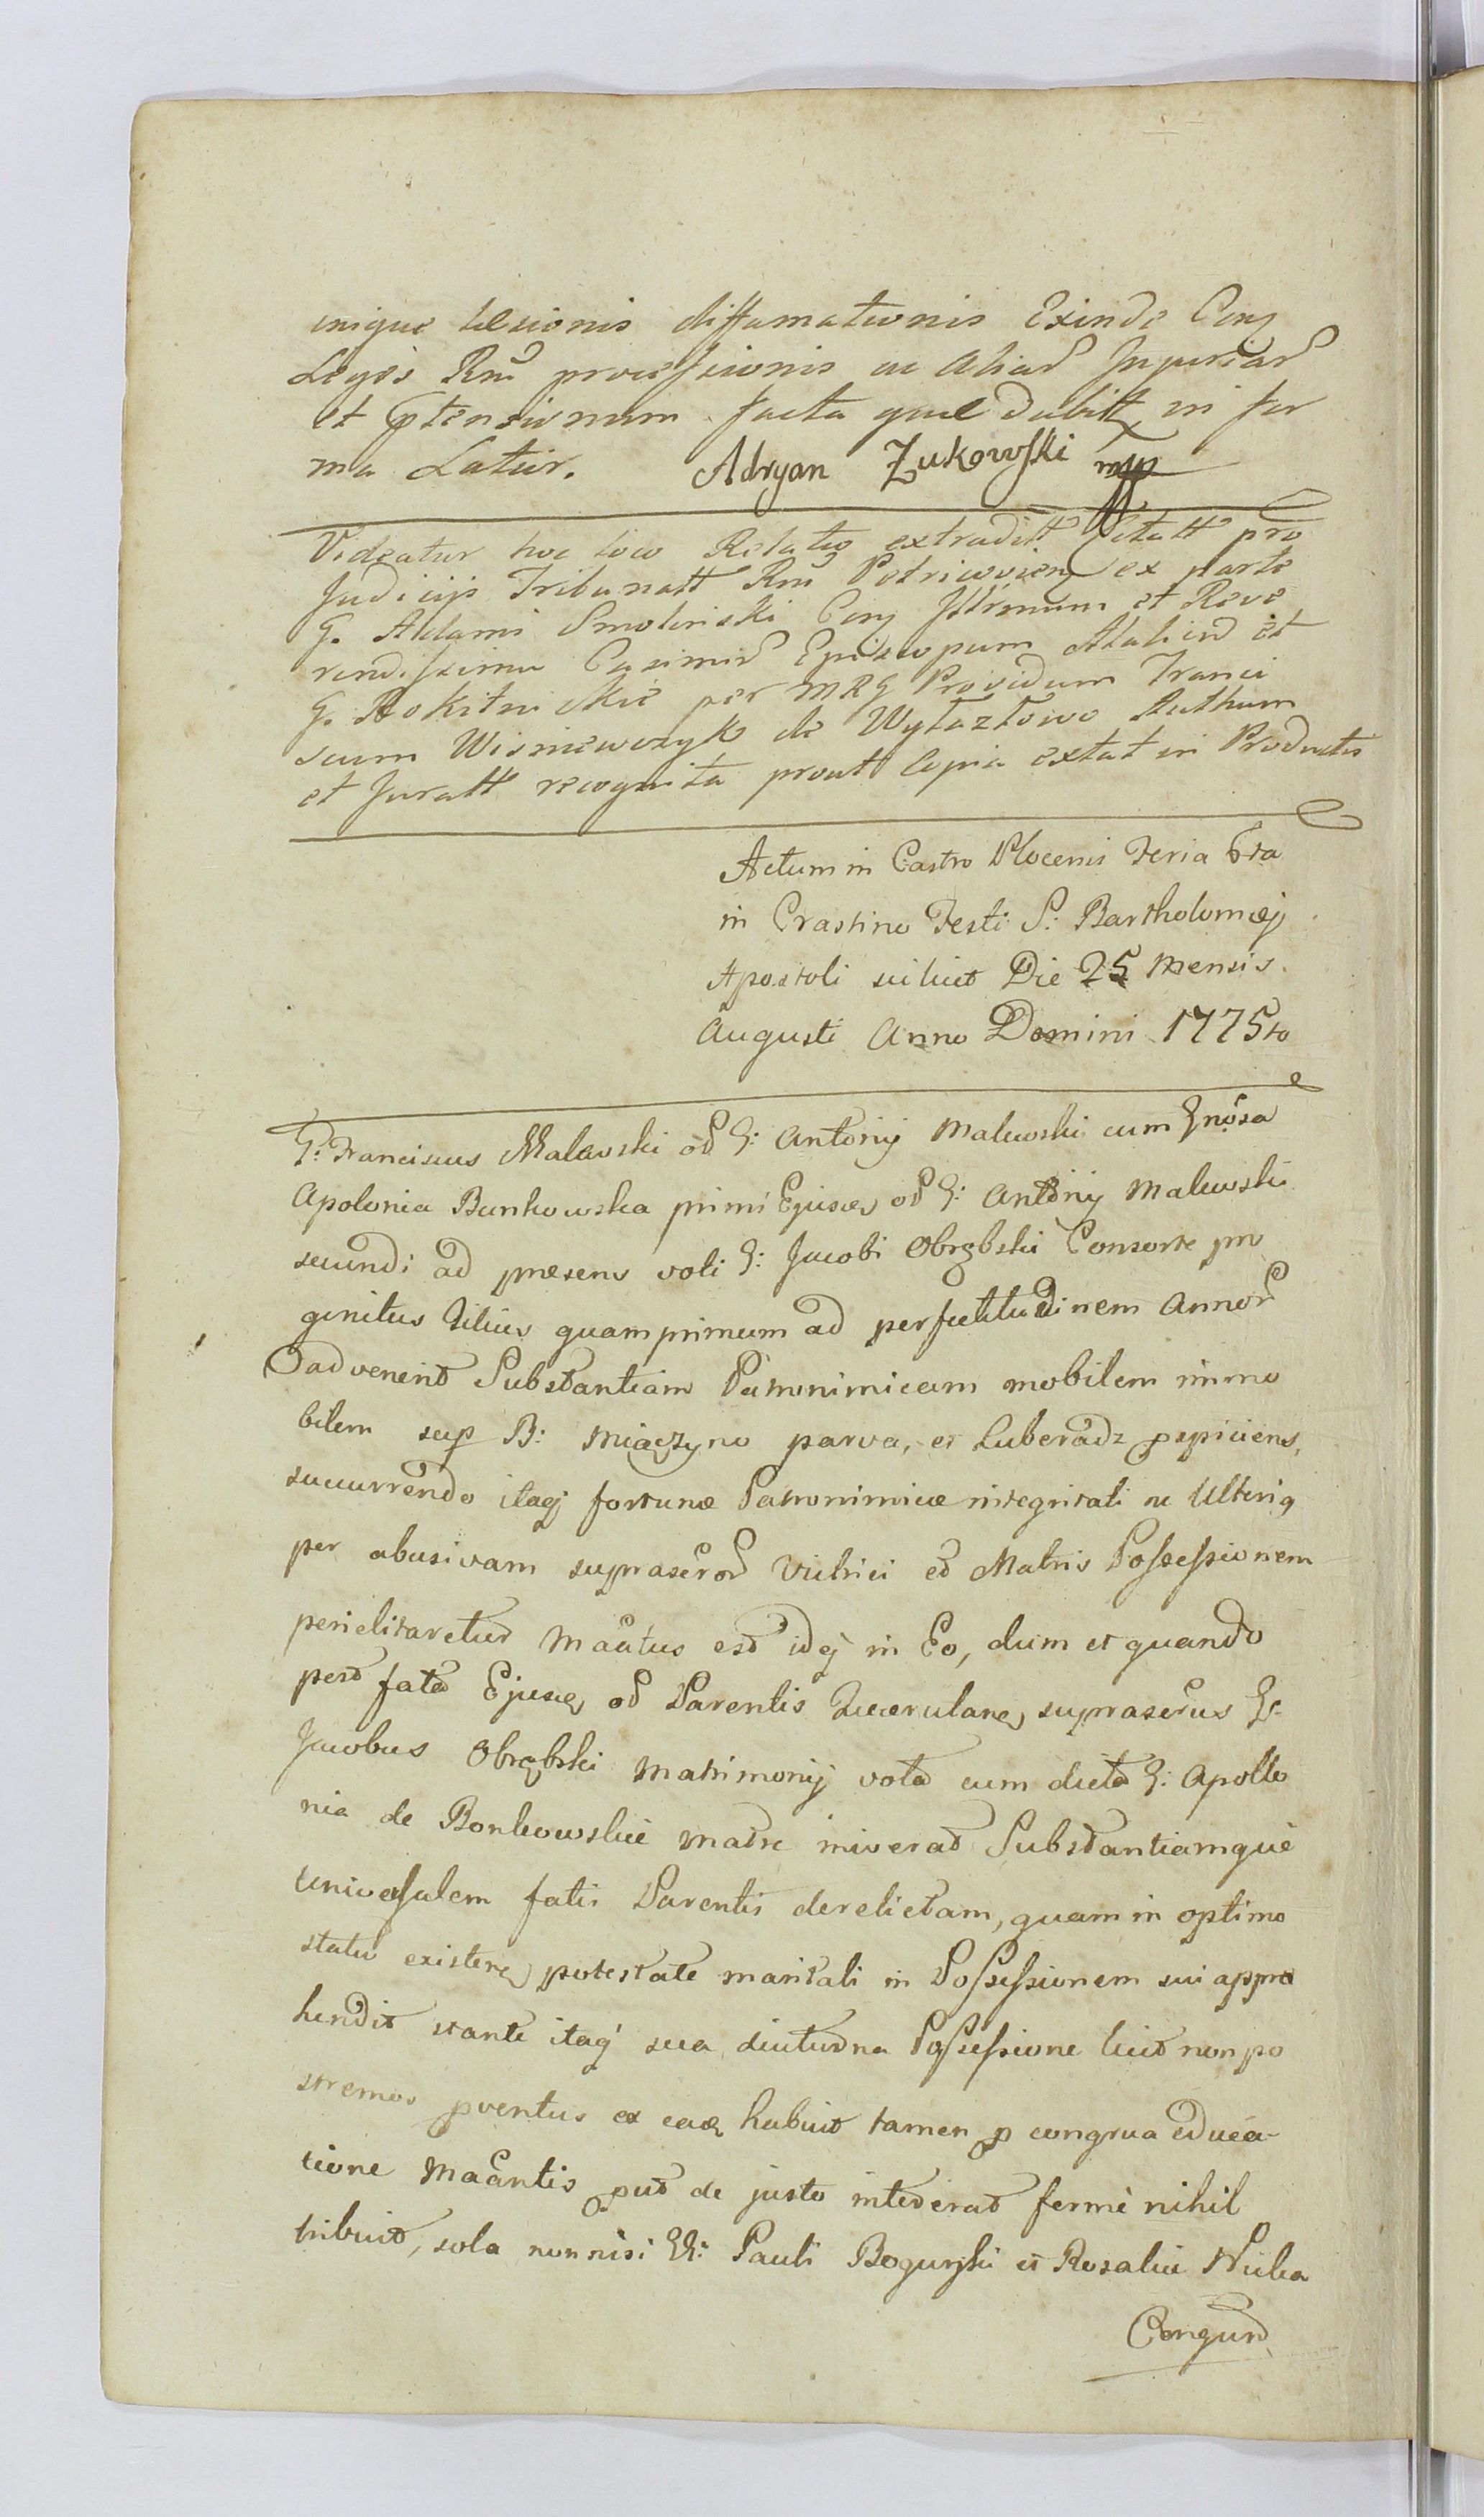 inique læsionis diffamationis Exinde Cerj
Legis Rni processionis ac aliar Injuriar
et ptensionum facta quæ dabitt in for
ma Latior. Adryan Zukowski mp
Videatur hoc loco Relatio extraditt Citatt pro
Judicijs Tribunatt Rni Petricovien ex parte
G. Adami Smolinski Cerj Illrmum et Reve
rendissimu Casimir Episcopum et
G. Rokitnickie per MRG Providum Franci
scum Wisniewczyk de Wytazłowo Authum
et Juratt recognita prout Copia extat in Productis
Actum in Castro Plocensi Feria 6ta
in Crastino Festi S: Bartholomæj
Apostoli scilicet Die 25 Mensis
Augusti Anno Domini 1775to
G: Franciscus Malewski od G: Antonij Malewski cum Gnosa
Apolonia Bankowska primi Ejusq od G: Antonij Malewski
secundi ad præsens voti G: Jacobi Obrębski Consorte pro
genitus Filius quamprimum ad perfectitudinem Annor
advenerit Substantiam Patronimicam mobilem immo
bilem sup B: Miączyno parva, et Luberadz pspiciens,
succurrendo itaqj fortunæ Patronimicæ integritati ne Ulterig
per abusivam suprascror Vitrici et Matris Possessionem
periclitaretur Mactus est idqj in Eo, dum et quando
post fata Ejusq od Parentis Querulang suprascrus G.
Jacobus Obrębski Matrimonij vota cum dicta G: Apollo
nia de Bonkowskie matre iniverat Substantiamque
universalem fatis Parentis derelictam, quam in optimo
statu existeng potestate maritali in Possessionem sui appre
hendit stante itaqj sua diuturna Possessione licet non po
stremos pventus ex eaq habuit tamen p congrua educa-
tione Mactantis put de justo interat ferme nihil
tribuit, sola nonnisi GG: Pauli Bogurski et Rosaliæ Nicka
Congur